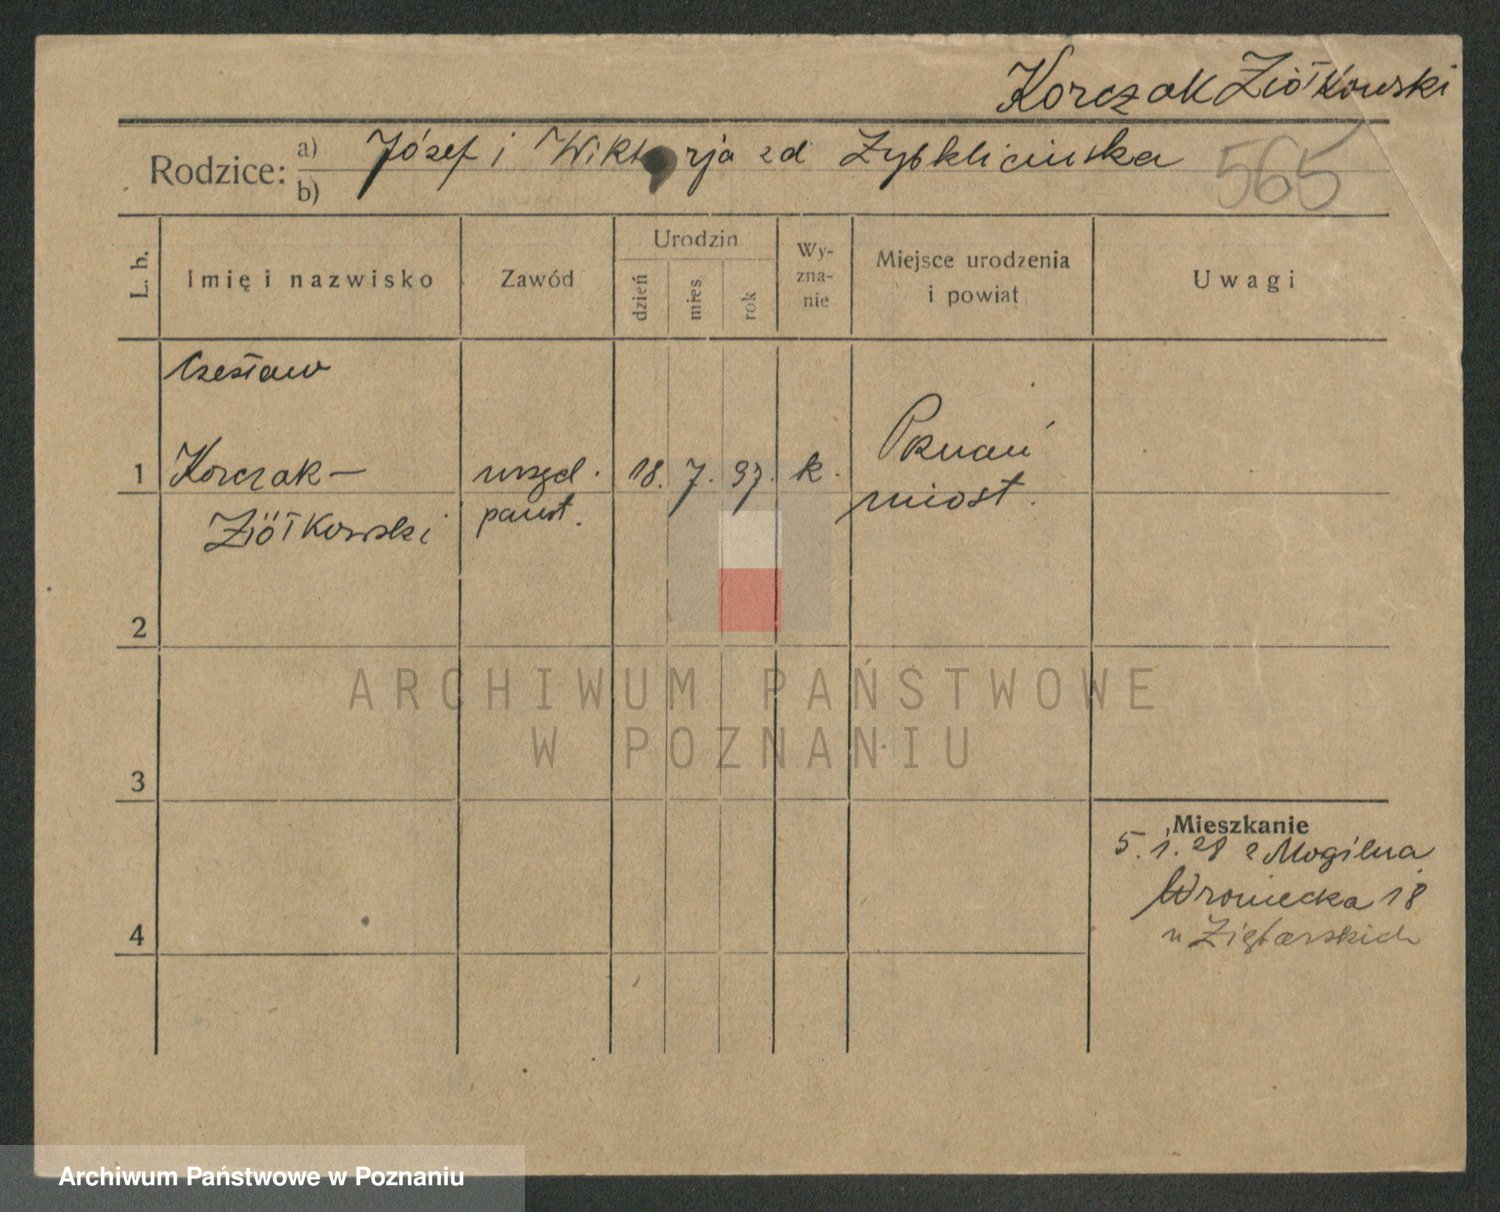 Korczak Ziółkowski
Rodzice: a) Józef i Wiktorja zd
b)
565
L. b.
Imię i nazwisko
Zawód
Urodzin
dzień
mies.
rok
Wy-
zna-
nie
Miejsce urodzenia
i powiat
Uwagi
Czesław
1 Korczak – urzęd. 18. 7. 97. k. Poznań
Ziółkowski państ. miast.
2
3
4
Mieszkanie
5.1.28 z Mogilna
Wroniecka 18
u Ziętarskich
ARCHIWUM PAŃSTWOWE
W POZNANIU
Archiwum Państwowe w Poznaniu